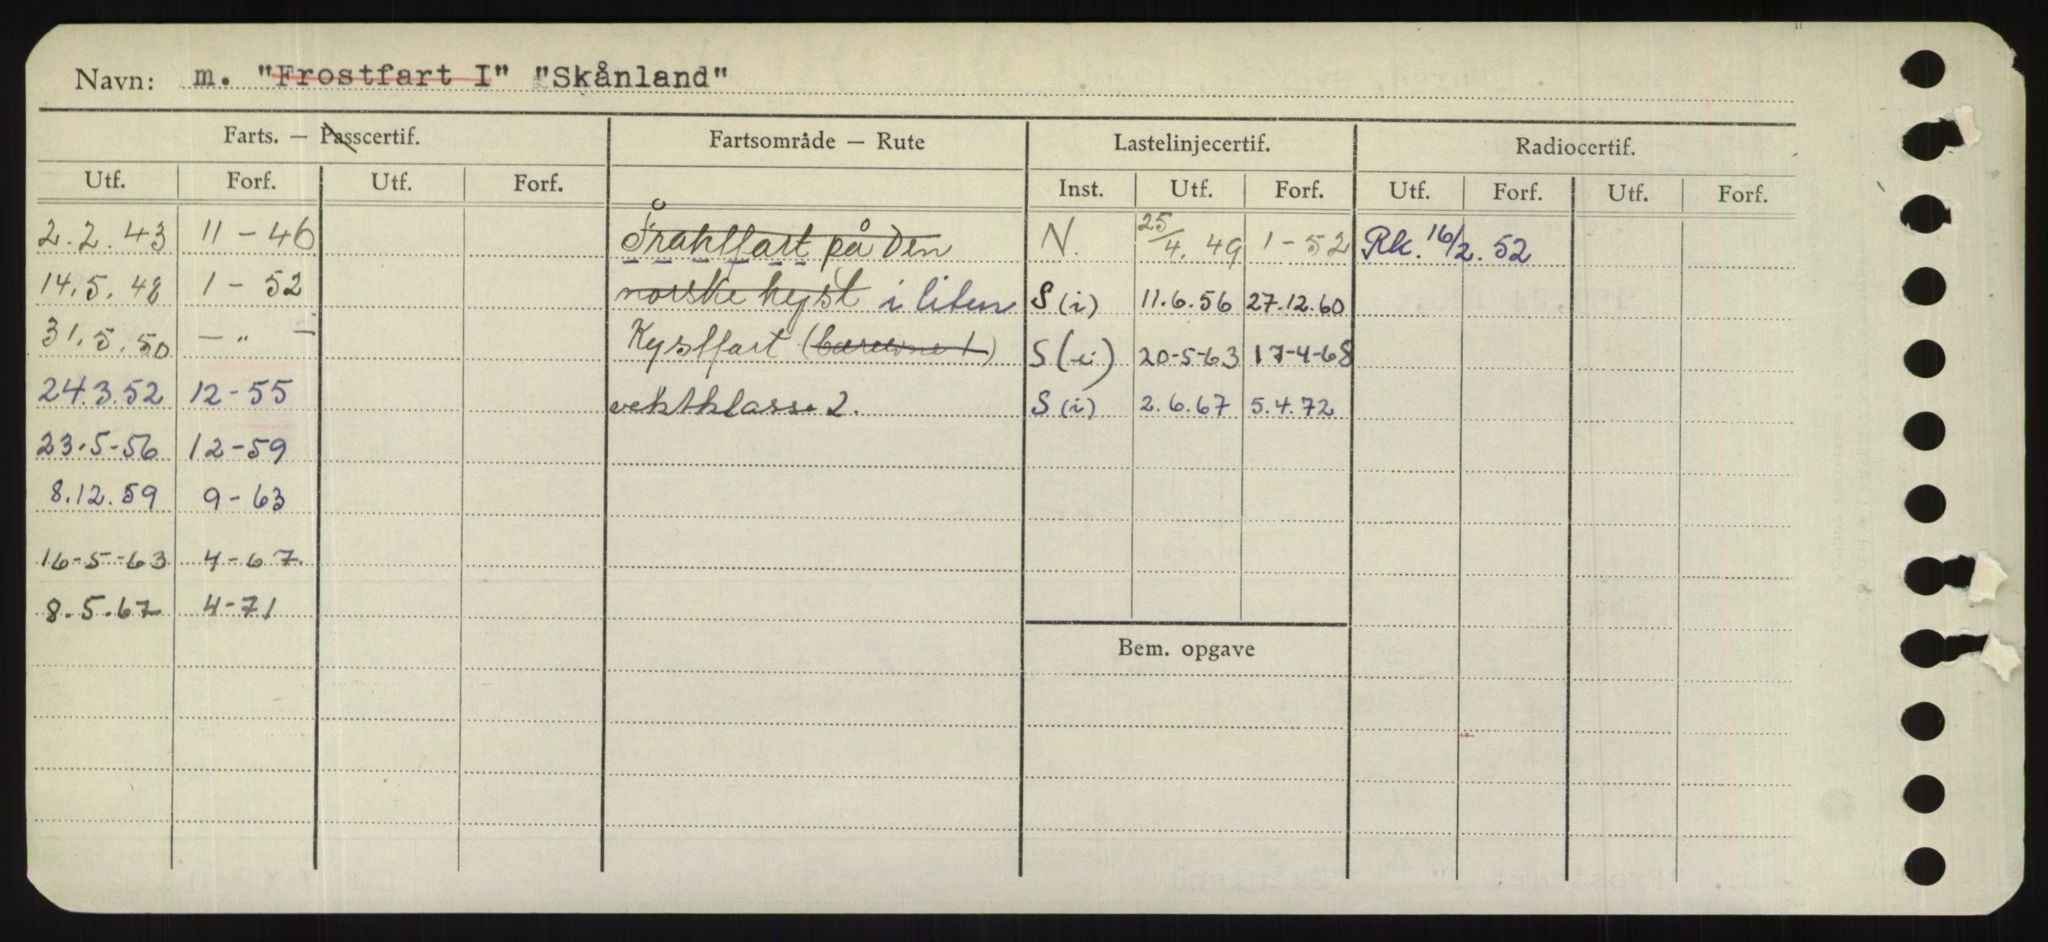 Navn: m. "Frostfart I" "Skånland"
Farts. — Passcertif. Fartsområde — Rute Lastelinjecertif. Radiocertif.
Utf. Forf. Utf. Forf. Inst. Utf. Forf. Utf. Forf. Utf. Forf.
2.2.43 11-46 Fraktfart på den N. 25/4.49 1-52 Rk. 16/2.52
14.5.48 1-52 norske kyst i liten S(i) 11.6.56 27.12.60
31.5.50 — " — Kystfart ( ) S(i) 20-5-63 17-4-68
24.3.52 12-55 vektklasse 2. S(i) 2.6.67 5.4.72
23-5-56 12-59
8.12.59 9-63
16-5-63 4-67.
8.5.67 4-71
Bem. opgave